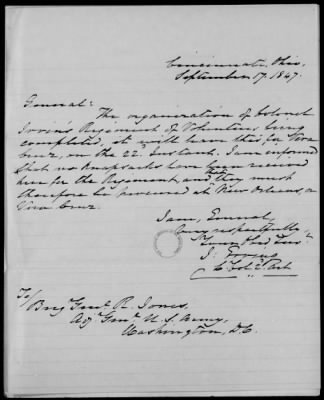 Cincinnati, Ohio,
September 17, 1847.
General:
The organization of Colonel
Irvin's Regiment of Volunteers being
completed, it will leave this, for Vera
Cruz, on the 22d Instant. I am informed
that no knapsacks have been received
here for the Regiment, and they must
therefore be procured at New Orleans, or
Vera Cruz.
I am, General,
very respectfully,
Your Obed Serv
J. Erving
To/
Brig. Genl. R. Jones,
Adj. Genl. U. S. Army,
Washington, D.C.